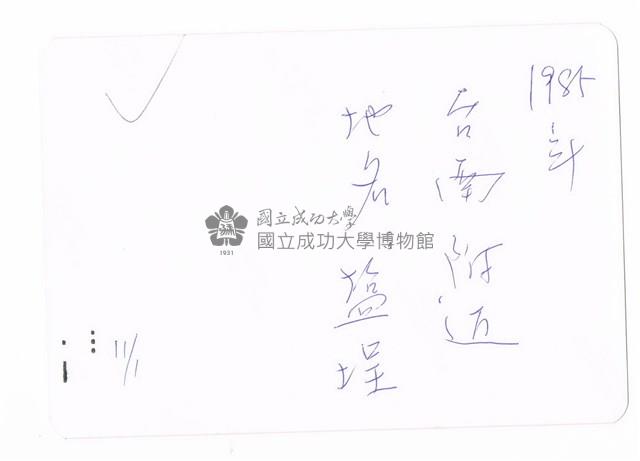 1985年
台南附近
地名塩埕
國立成功大學
國立成功大學博物館
1931
11/1